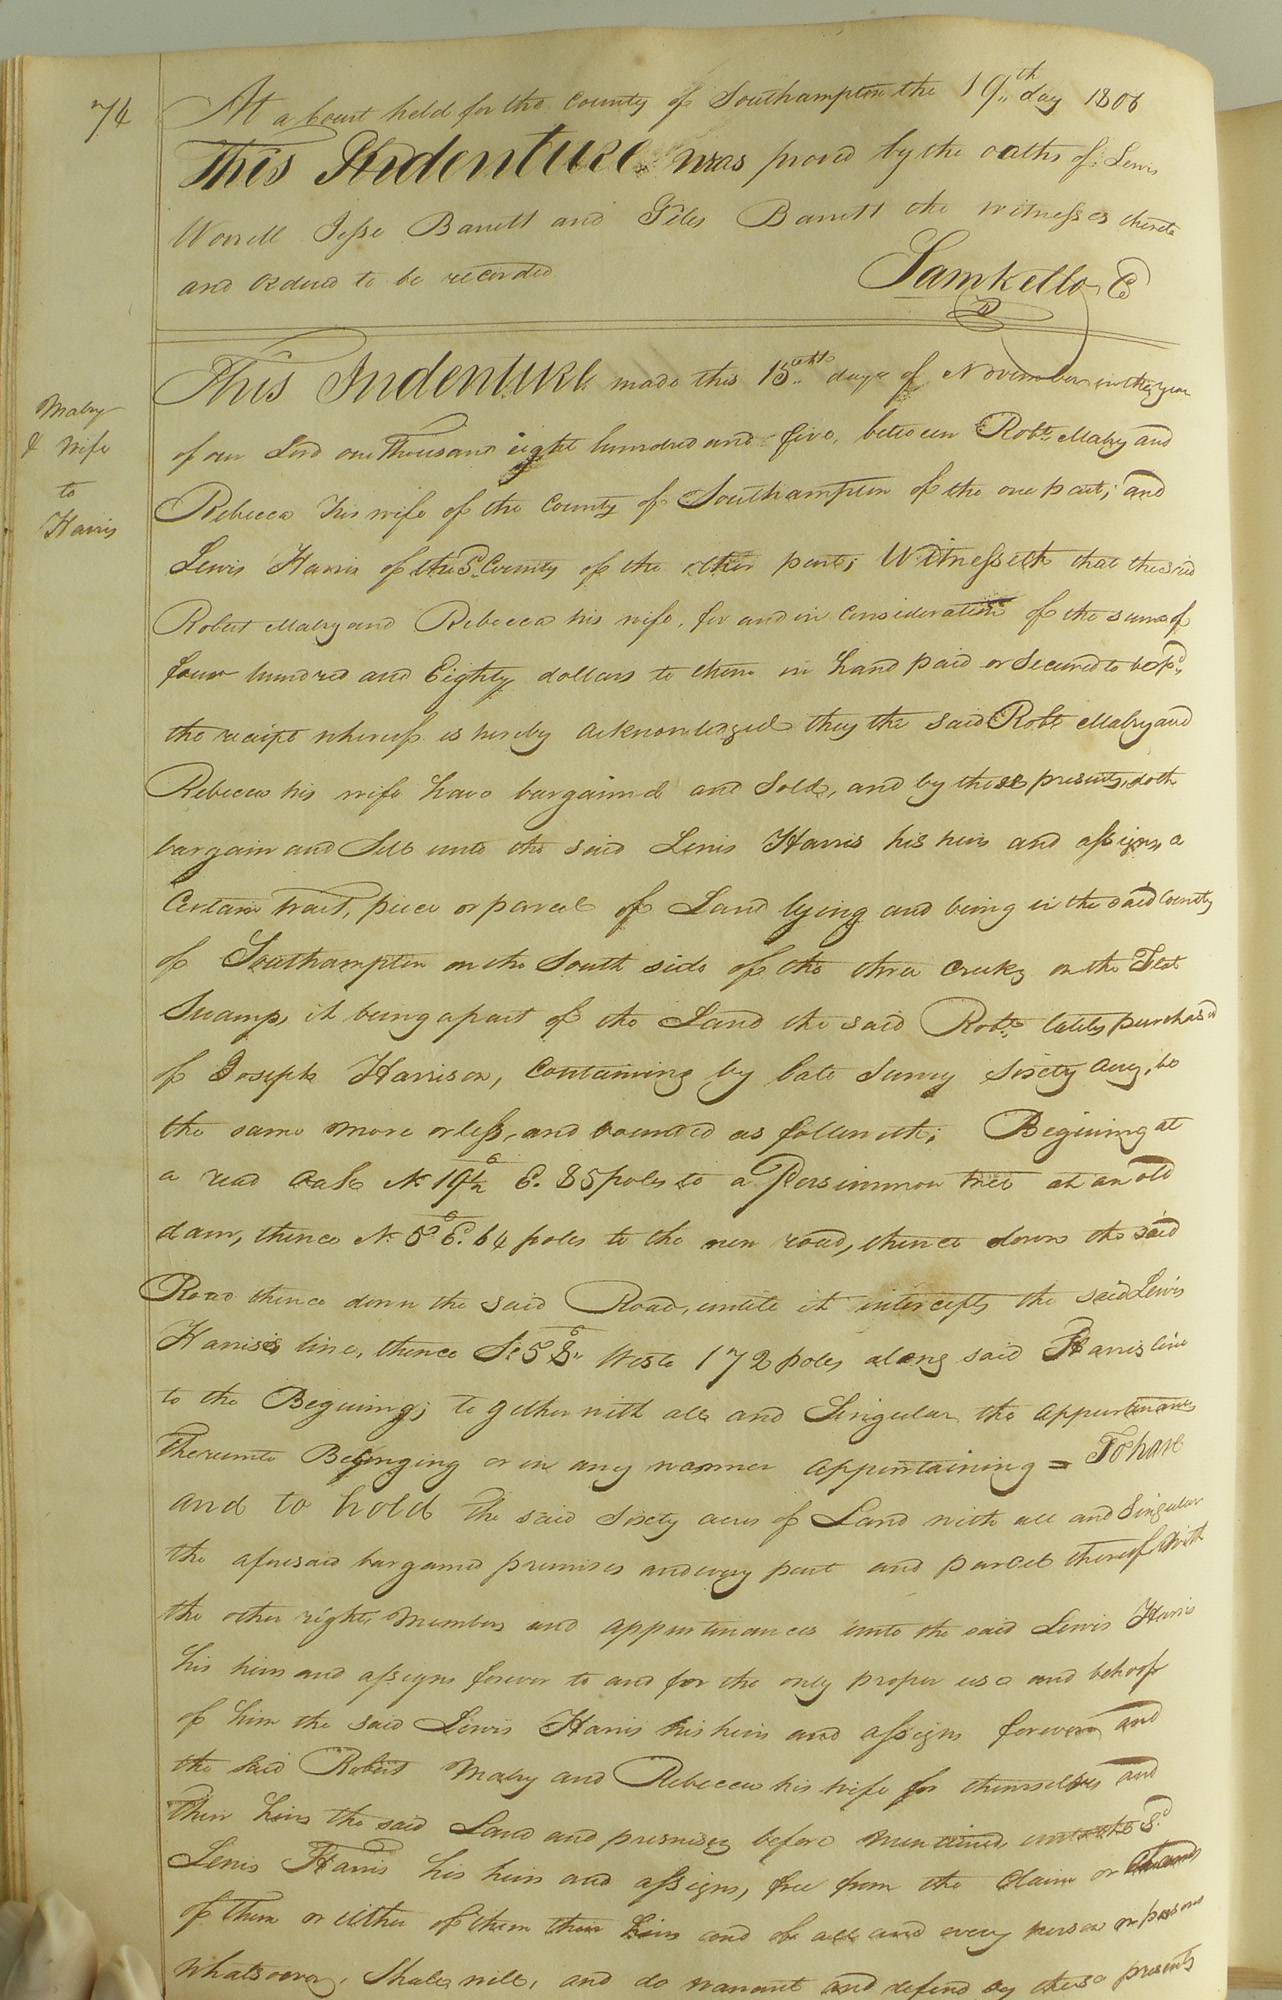 74
At a Court held for the County of Southampton the 19th day 1806
This Indenture was proved by the oaths of Lewis
Worrell Jesse Barrett and Giles Barrett the witnesses thereto
and ordered to be recorded
Saml Kello C
Mabry
& wife
to
Harris
This Indenture made this 15th day of November in the year
of our Lord one thousand eight hundred and five, between Robt. Mabry and
Rebecca his wife of the County of Southampton of the one part; and
Lewis Harris of the Sd. County of the other part; Witnesseth that the said
Robert Mabry and Rebecca his wife, for and in consideration of the sum of
four hundred and Eighty dollars to them in hand paid or Secured to be pd.
the receipt whereof is hereby acknowledged they the said Robt Mabry and
Rebecca his wife have bargained and Sold, and by these presents, doth
bargain and Sell unto the said Lewis Harris his heirs and assigns, a
Certain tract, piece or parcel of Land lying and being in the said County
of Southampton on the South side of the three creeks on the Flat
Swamp, it being a part of the Land the said Robt. lately purchased
of Joseph Harrison, Containing by late Survey Sixty acres, be
the same more or less, and bounded as followeth; Begining at
a read oak N 19½ E. 85 poles to a Persimmon tree at an old
dam, thence N. 5° E. 64 poles to the new road, thence down the said
Road thence down the said Road, untill it intercepts the said Lewis
Harris's line, thence So. 58° West 172 poles along said Harris line
to the Begining; together with all and Singular the appurtenances
Thereunto Belonging or in any manner appertaining = To have
and to hold the said Sixty acres of Land with all and Singular
the aforesaid bargained premises and every part and parcel thereof With
the other rights, Members and appurtenances unto the said Lewis Harris
his heirs and assigns forever to and for the only proper use and behoof
of him the said Lewis Harris his heirs and assigns forever and
the said Robert Mabry and Rebecca his wife for themselves and
their heirs the said Land and premises before mentioned, unto the Sd.
Lewis Harris his heirs and assigns, free from the Claim or demands
of them or either of them their heirs and of all and every person or persons
whatsoever, Shall, will, and do warrant and defend by these presents